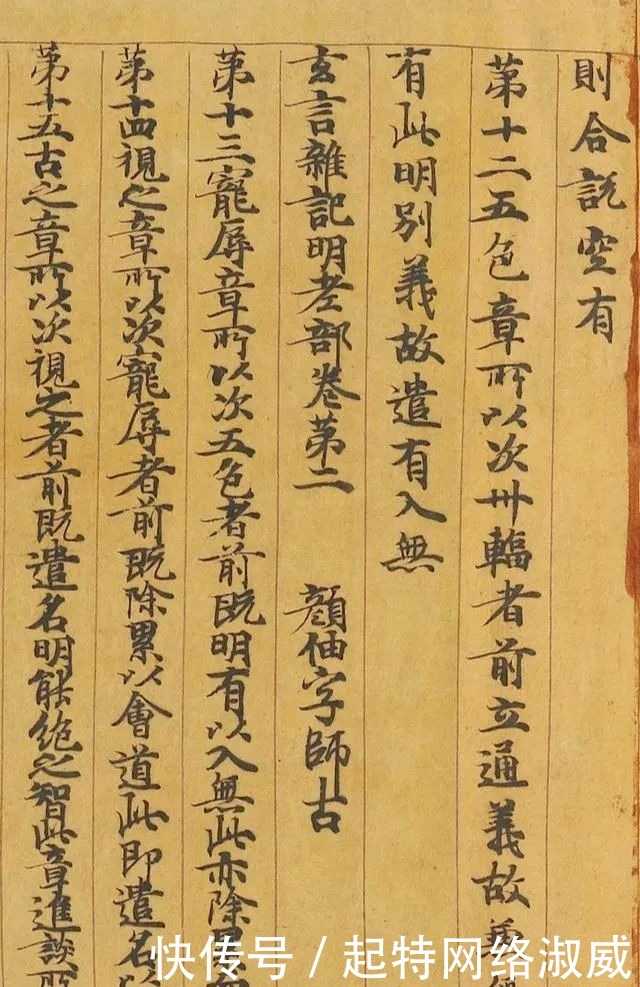 則合説空有
第十二五色章所以次卅輻者前立通義故義
有此明別義故遣有入無
玄言雜記明老部卷第二 顔伷字師古
第十三寵辱章所以次五色者前既明有以入無此亦除累
第十四視之章所以次寵辱者前既除累以會道此即遣名以
第十五古之章所以次視之者前既遣名明能絶之智此章進談所
快传号 / 起特网络淑威